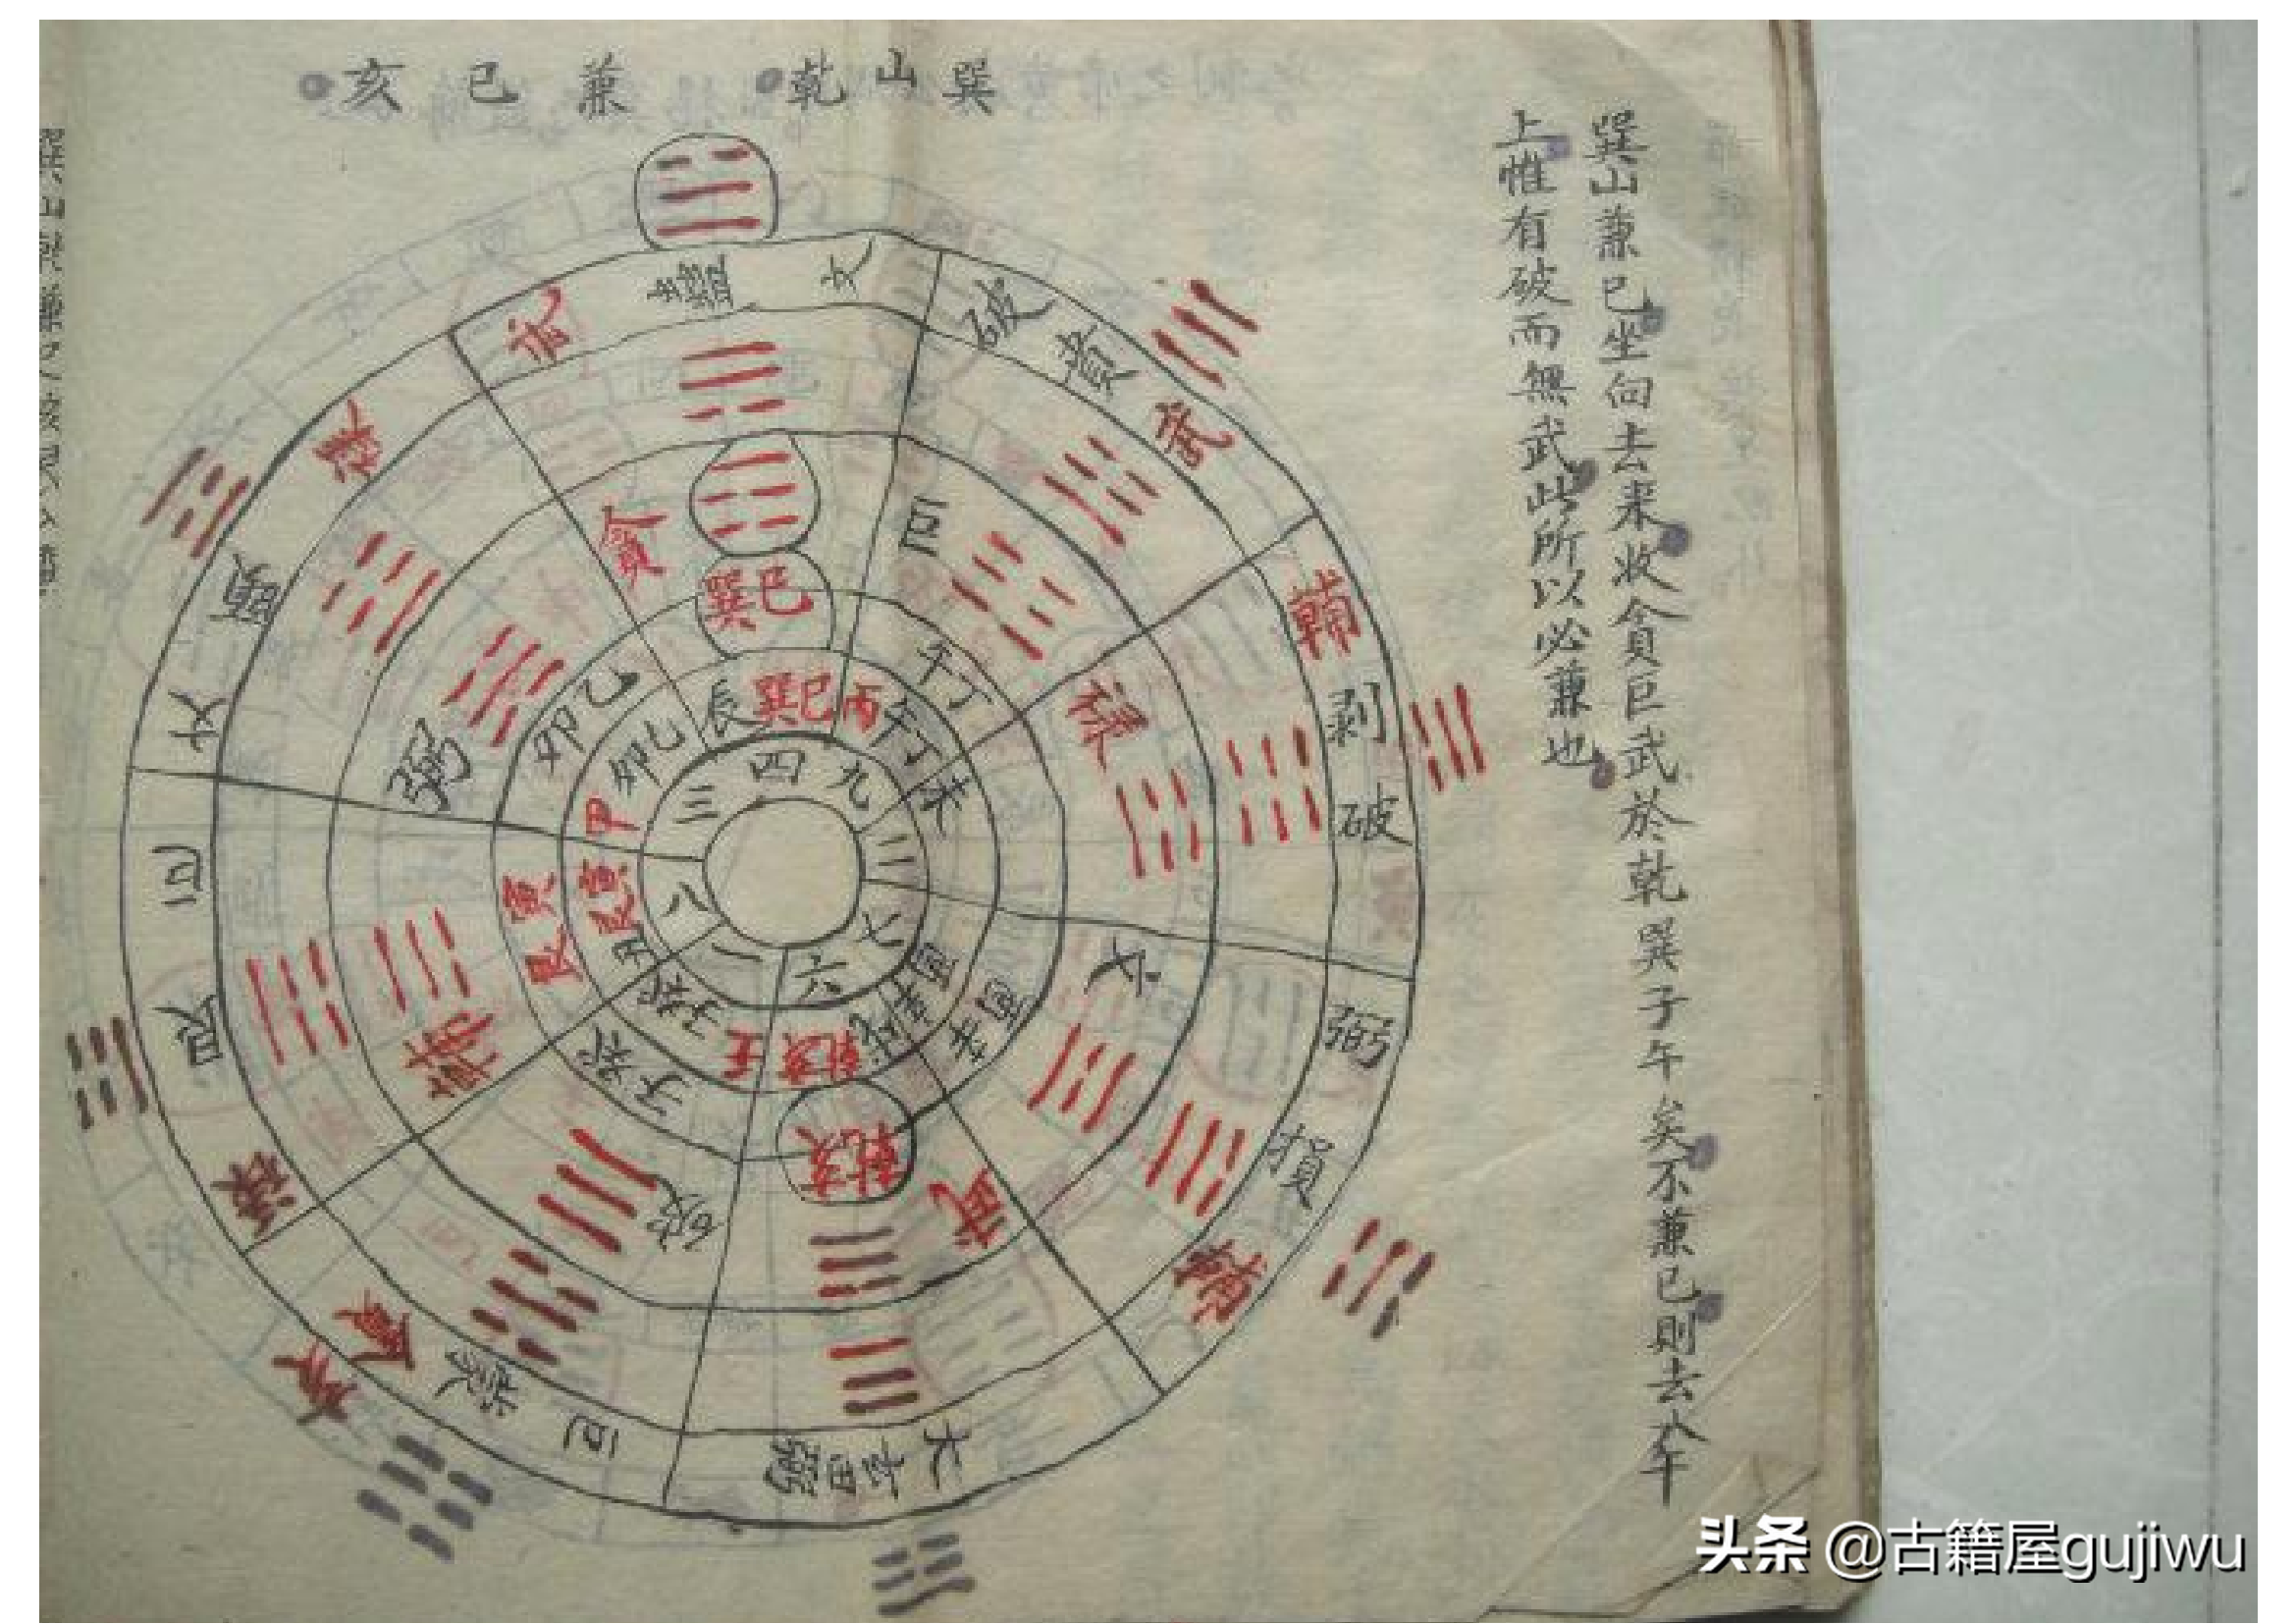 巽山乾兼巳亥
巽山兼巳坐向去来收貪巨武於乾巽子午矣不兼巳則去午
上惟有破而無武此所以必兼也
武
蠱
文
破
賁
武
輔
剥
破
弼
損
輔
大畜
弼
巨
艮
巨
文
頤
禄
貪
巨
禄
文
武
破
輔
弼
巽巳
午丁
乾亥
子癸
艮寅
卯乙
辰
巽巳
丙
午丁
未
乾亥
壬
子癸
丑
艮寅
甲
卯乙
四
九
二
七
六
一
八
三
头条 @古籍屋gujiwu